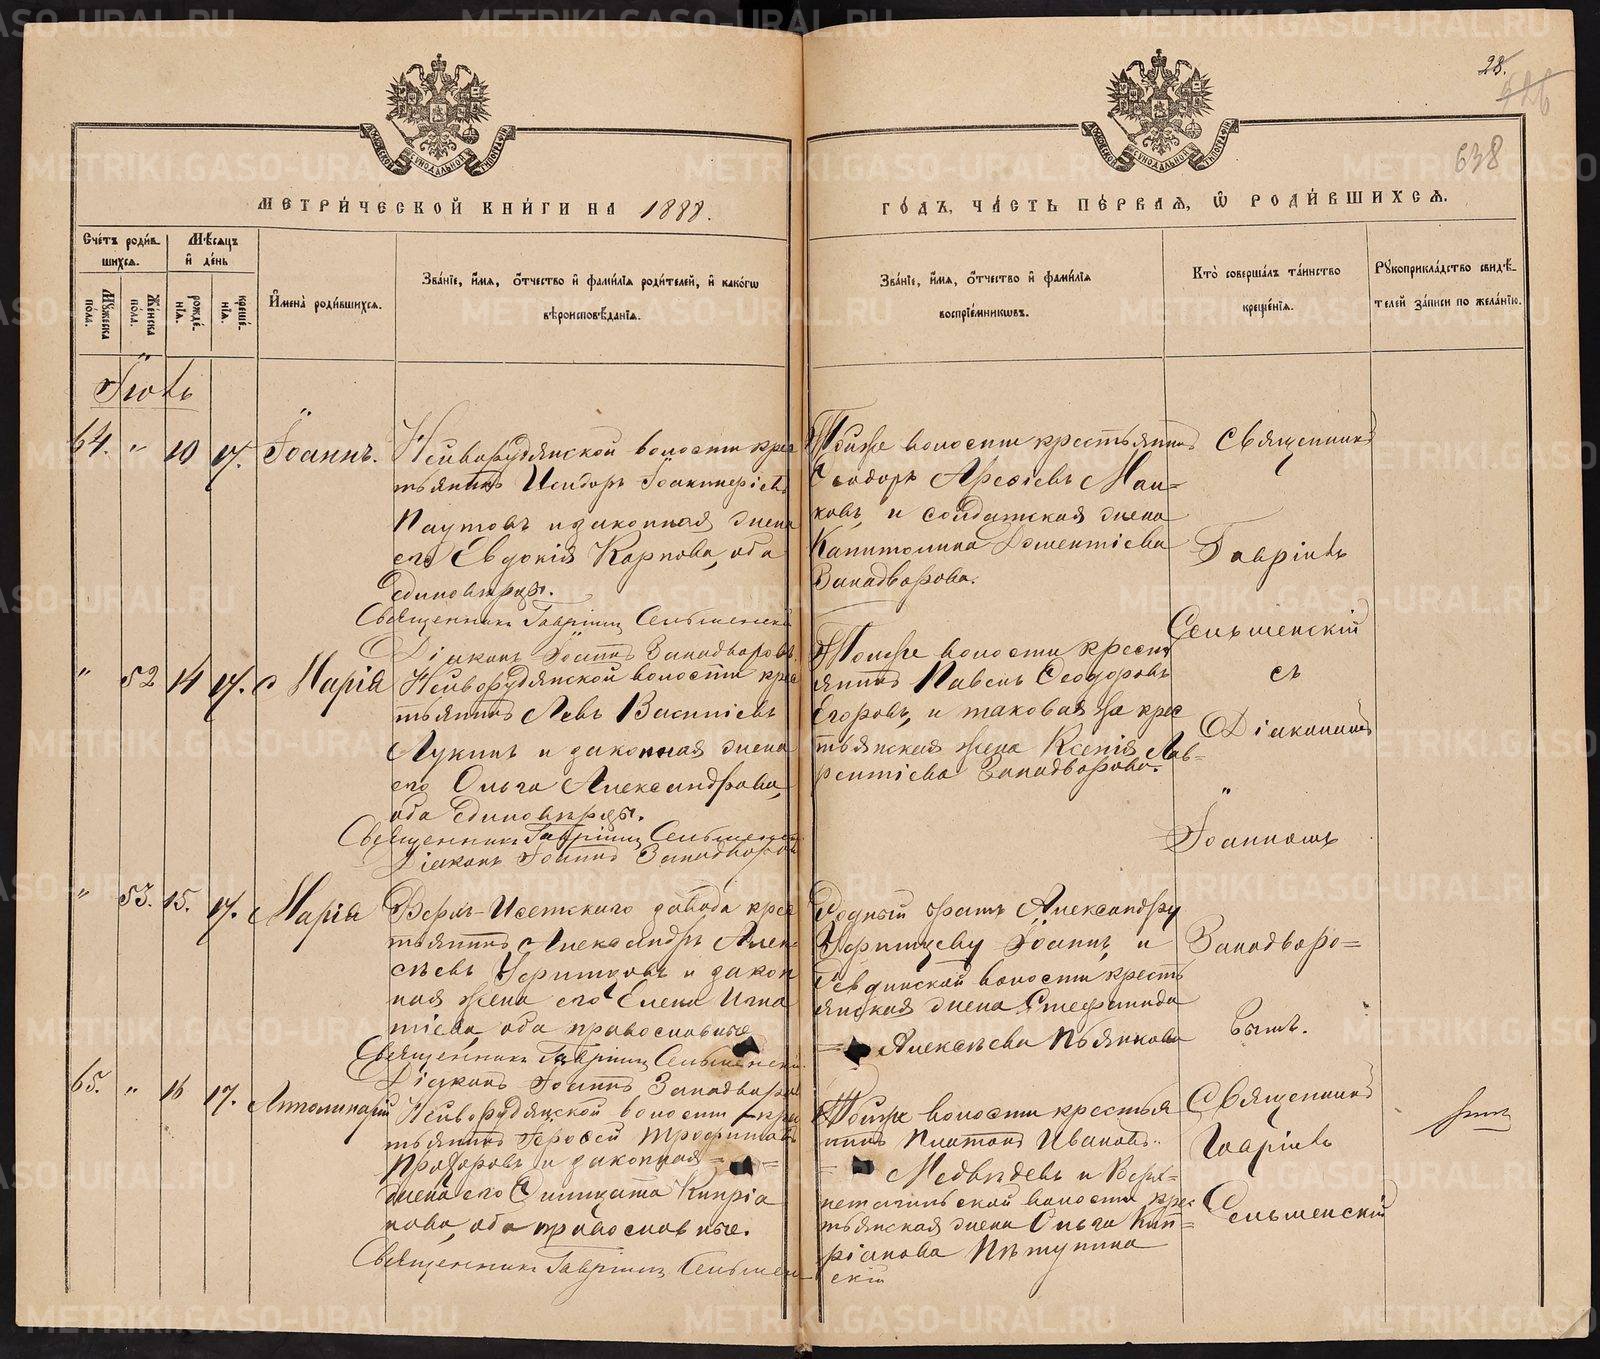 28.
638
МЕТРИ́ЧЕСКОЙ КНИ́ГИ НА 1888.
ГО́ДЪ, ЧА́СТЬ ПЕ́РВАЯ, Ѽ РОДИ́ВШИХСЯ.
Сче́тъ роди́в-
шихся.
Мѣ́сяцъ
и҆ де́нь
Мꙋ́жеска
по́ла.
Же́нска
пола.
рожде́-
нїя.
креще́-
нїя.
И҆мена̀ роди́вшихся.
Зва́нїе, и҆́мя, ѻ҆́тчество и҆ фами́лїя роди́телей, и҆ како́гѡ
вѣроисповѣ́данїя.
Зва́нїе, и҆́мя, ѻ҆́тчество и҆ фами́лїя
воспрїе́мникѡвъ.
Кто̀ соверша́лъ та́инство
креще́нїя.
Рꙋкоприкла́дство свидѣ́-
телей за́писи по жела́нїю.
Іюль
64. " 10 17. Іоаннъ.
Нейворудянской волости крес
тьянинъ Исидоръ Іоакимовъ
Паутовъ и законная жена
его Евдокія Карпова, оба
единоверцы.
Священникъ Гавріилъ Сельменскій
Діаконъ Іоаннъ Западворовъ.
Тойже волости крестьянинъ
Ѳеодоръ
и солдатская жена
Капитолина Доментіева
Западворова.
Священникъ
Гавріилъ
Сельменскій
съ
Діакономъ
Іоанномъ
Западворо=
вымъ.
" 52 14 17. Марія
Нейворудянской волости крес
тьянинъ Левъ Васильевъ
Лукинъ и законная жена
его Ольга Александрова,
оба единоверцы.
Священникъ Гавріилъ Сельменскій
Діаконъ Іоаннъ Западворовъ
Тойже волости кресть
янинъ Павелъ Ѳеодоровъ
Егоровъ, и таковая же крес
тьянская жена Ксенія Лав-
рентіева Западворова.
" 53. 15. 17. Марія
Верхъ-Исетскаго завода крес
тьянинъ Александръ Алек
сѣевъ и закон
ная жена его Елена Игна
тіева, оба православные
Священникъ Гавріилъ Сельменскій
Діаконъ Іоаннъ Западворовъ
Родный братъ Александру
Іоаннъ, и
волости кресть
янская жена Стефанида
= Алексѣева Пьянкова
65. " 16 17. Апполинарій
Нейворудянской волости крес
тьянинъ Іероѳей Трофимовъ
Прохоровъ и законная =
жена его Синклита Кипріа
нова, оба православные.
Священникъ Гавріилъ Сельмен
скій
Тойже волости крестья
нинъ Платонъ Ивановъ
Медвѣдевъ и Верх-
нетагильской волости крес
тьянская жена Ольга Кип-
ріанова Пѣтунина
Священникъ
Гавріилъ
Сельменскій
METRIKI.GASO-URAL.RU